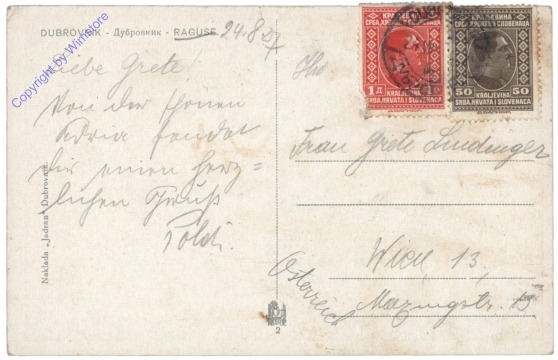 DUBROVNIK - Дубровник - RAGUSE 24.8.27
Liebe Grete!
Von der schönen
Adria sendet
Dir einen herz=
lichen Gruß
Poldi.
Frau Grete Lindinger
Wien 13,
Österreich
Naklada „Jadran" Dubrovnik
2
КРАЉЕВИНА
СРБА, ХРВАТА И СЛОВЕНАЦА
1 Д
KRALJEVINA
SRBA, HRVATA I SLOVENACA
КРАЉЕВИНА
СРБА, ХРВАТА И СЛОВЕНАЦА
50 50
KRALJEVINA
SRBA, HRVATA I SLOVENACA
Copyright by Winstore